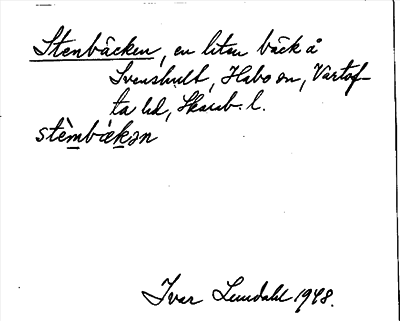 Stenbäcken, en liten bäck å
Svenshult, Habo sn, Vartof-
ta hd, Skarab. l.
stèmbäkən
Ivar Lundahl 1948.